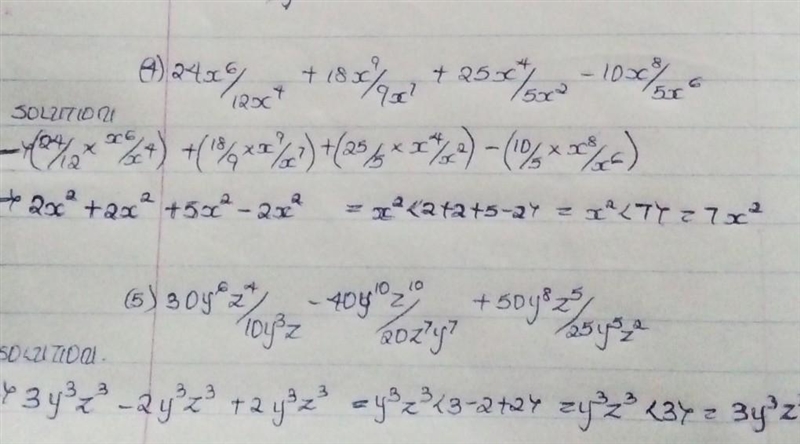 (4) 24x⁶/12x⁴ + 18x⁹/9x⁷ + 25x⁴/5x² - 10x⁸/5x⁶
SOLUTION
→(24/12 × x⁶/x⁴) + (18/9 × x⁹/x⁷) + (25/5 × x⁴/x²) - (10/5 × x⁸/x⁶)
→ 2x² + 2x² + 5x² - 2x² = x²<2+2+5-2> = x²<7> = 7x²
(5) 30y⁶z⁴/10y³z - 40y¹⁰z¹⁰/20z⁷y⁷ + 50y⁸z⁵/25y⁵z²
SOLUTION.
→ 3y³z³ - 2y³z³ + 2y³z³ = y³z³<3-2+2> = y³z³<3> = 3y³z³